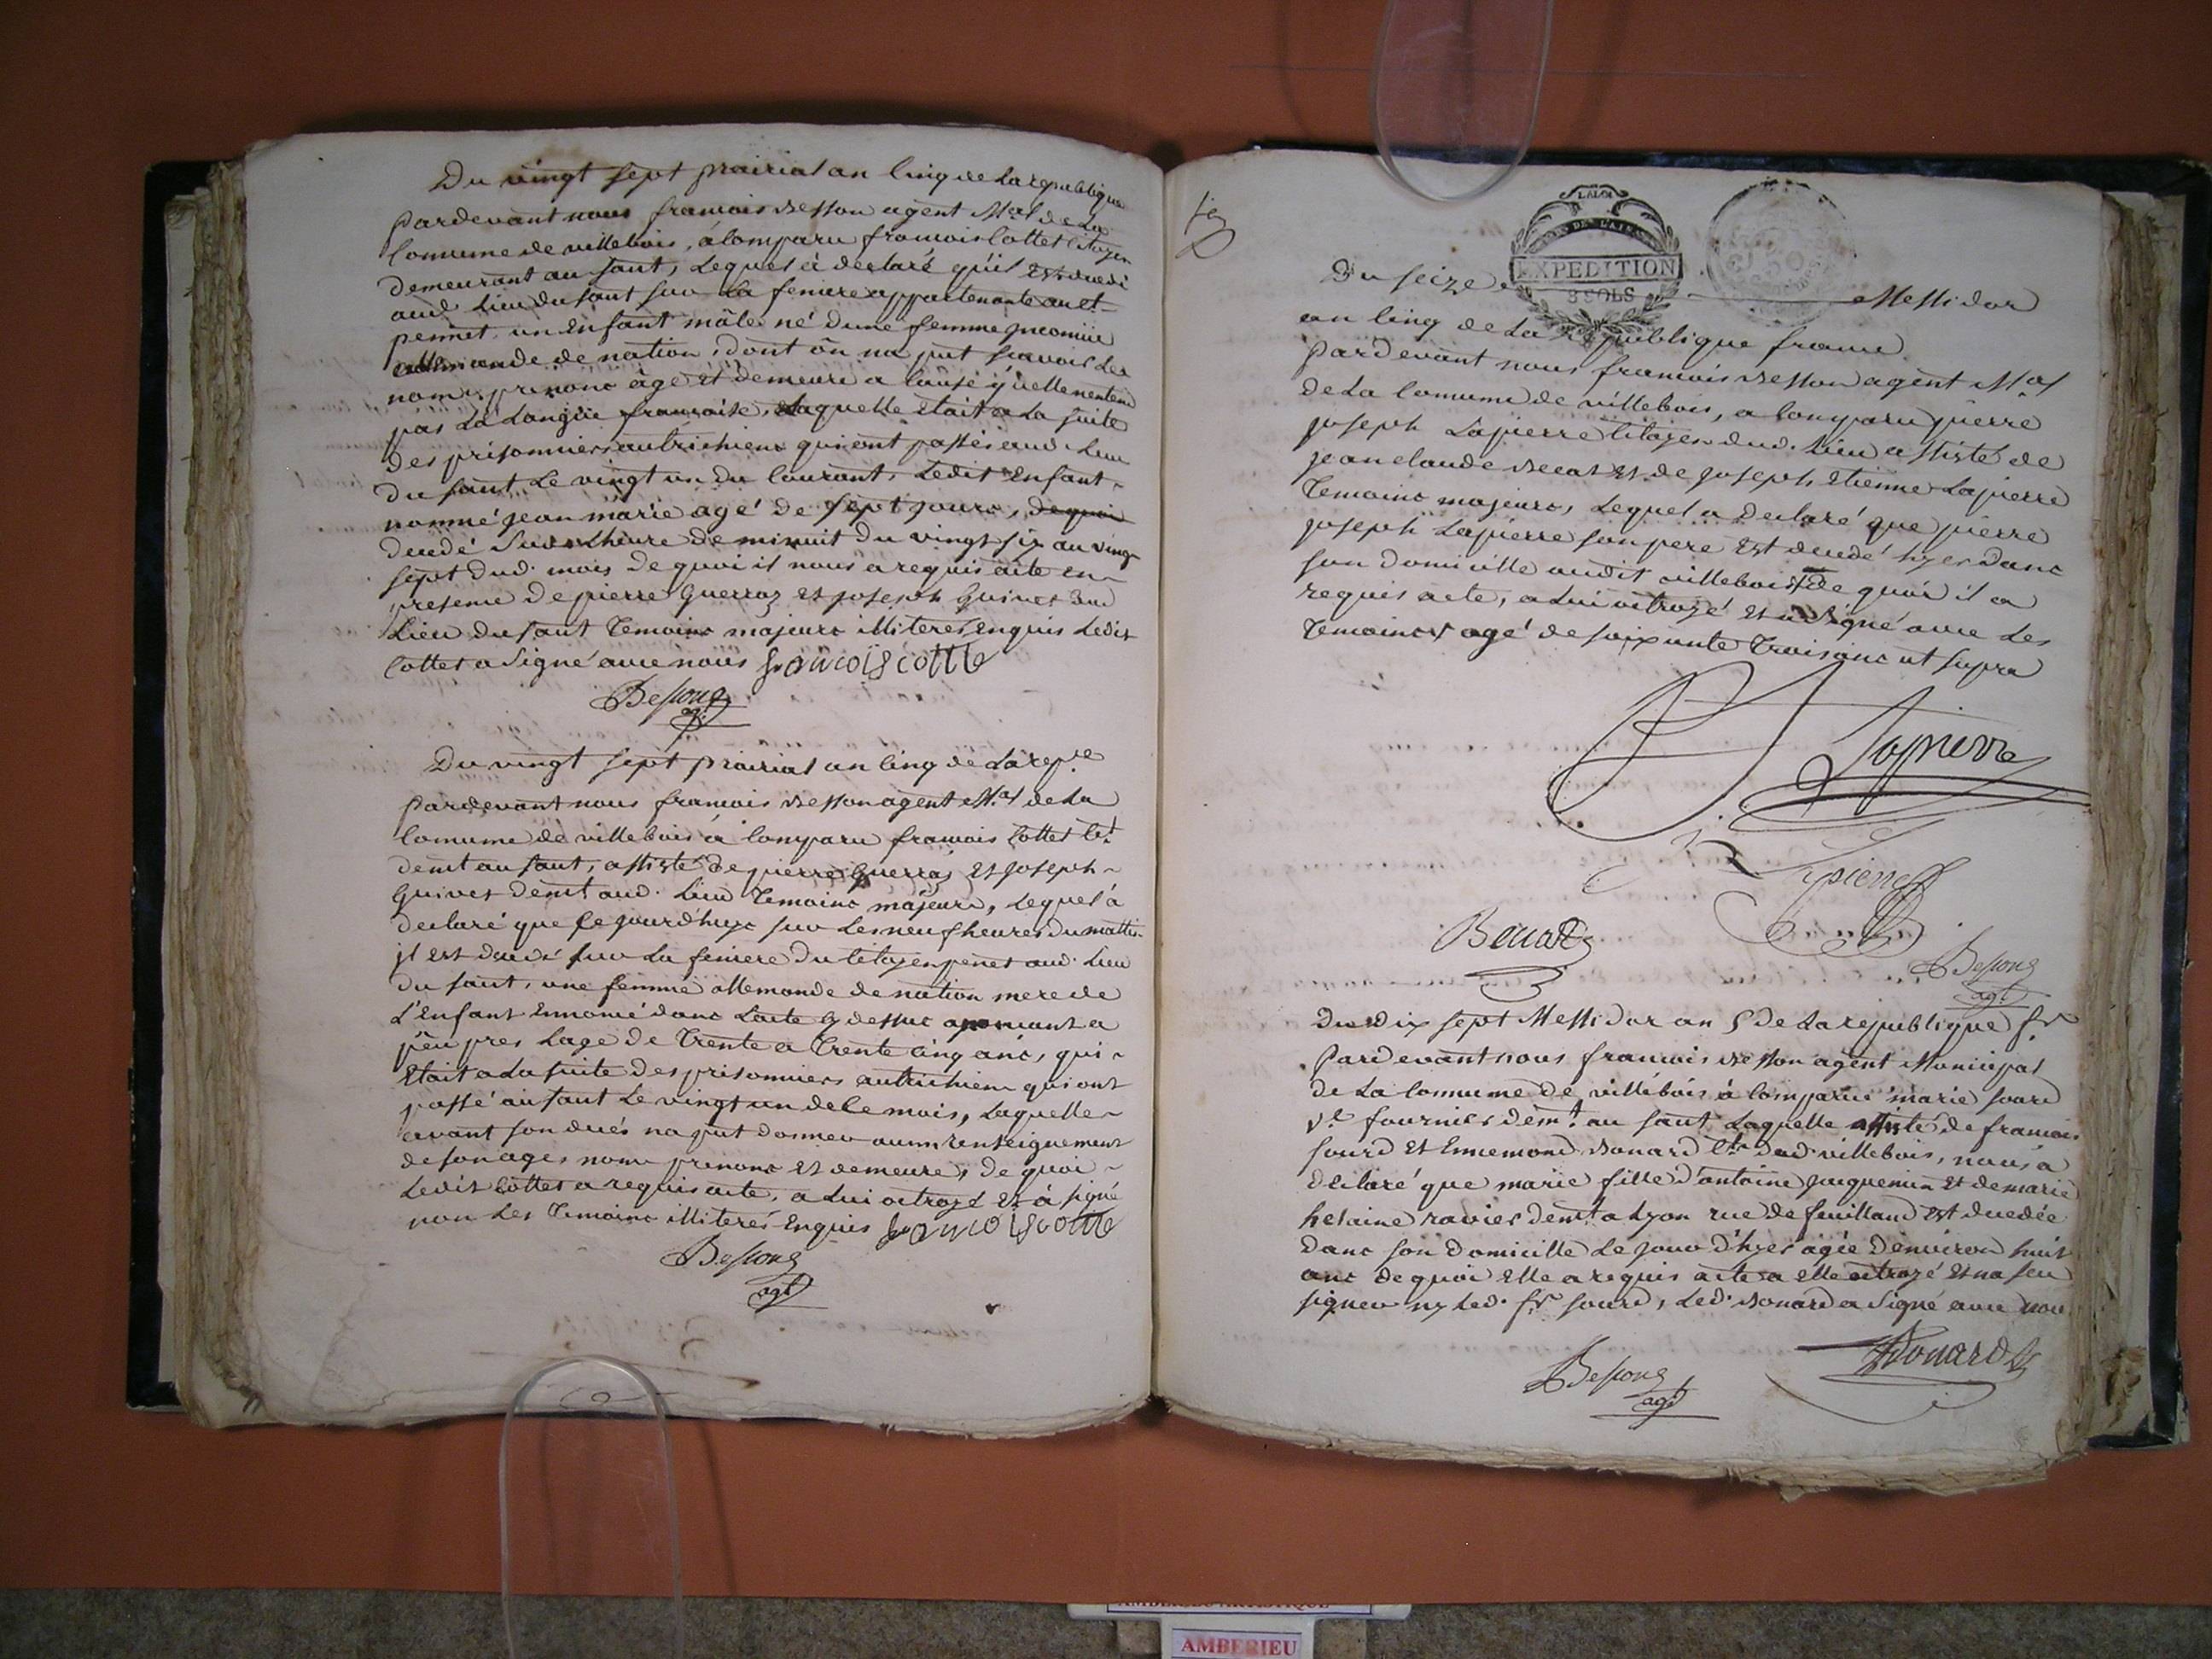 Du vingt sept prairial an cinq de La republique
pardevant nous francois Besson agent M.al de La
Commune de villebois, à Comparu francois Cottet citoyen
demeurant au saut, Lequel à declaré qu'il est decedé
aud. Lieu du saut sur La feniere appartenante au ct.
pennet, un enfant mâle né d'une femme inconnüe
allemande de nation, dont on na put scavoir Les
noms prenoms age et demeure a Cause qu'elle nentend
pas La Langüe francaise, Laquelle etait a La suite
des prisonniers autrichiens qui ont passés aud. Lieu
du saut Le vingt un du Courant, Ledit enfant
nommé jean marie agé de sept jours, de quoi
decedé sur Lheure de minuit du vingt six au vingt
sept dud. mois de quoi il nous a requis acte en
presence de pierre Guerraz et joseph Guinet dud.
Lieu du saut temoins majeurs illiterés enquis Ledit
Cottet a signé avec nous francois cotte
Besson
agt
Du vingt sept prairial an cinq de La repe
pardevant nous francois Besson agent M.al de La
Commune de villebois à Comparu francois Cottet Ct.
demt au saut, assisté de pierre Guerraz et joseph
Guinet demt aud. Lieu temoins majeurs, Lequel à
declaré que ce jourd'huy sur Les neuf heures du mattin
il est decedé sur La feniere du Citoyen penet aud. Lieu
du saut, une femme allemande de nation mere de
L'enfant ennomé dans Lacte cy dessus aprochant a
peu pres Lage de trente a trente cinq ans, qui
etait a La suite des prisonniers autrichiens qui ont
passé au saut Le vingt un de Ce mois, Laquelle
avant son decés na put donner aucun renseignement
de son age, nom prenoms et demeure, de quoi
Ledit Cottet a requis acte, a Lui octroyé et à signé
non Les temoins illiterés enquis francois cotte
Besson
agt
LA LOI
EXPEDITION
3 SOLS
Du seize Messidor
an cinq de La republique franc.
pardevant nous francois Besson agent M.al
de La Commune de villebois, a Comparu pierre
joseph Lapierre Citoyen dud. Lieu assisté de
jean claude Becat et de joseph etienne Lapierre
temoins majeurs, Lequel a declaré que pierre
joseph Lapierre son pere est decedé hyer dans
son domicille audit villebois de quoi il a
requis acte, a Lui octroyé et a signé avec Les
temoins agé de soixante trois ans ut supra
Lapierre
Lapierre
Becat
Besson
agt
Du dix sept Messidor an 5 de La republique fr.
Pardevant nous francois Besson agent Municipal
de La Commune de villebois à Comparüe marie sourd
ve. fournier demt. au saut Laquelle assisté de francois
sourd et Ennemond Bonard Cts. dud. villebois, nous a
declaré que marie fille d'antoine juquemin et de marie
helaine ravier demt a Lyon rue de fenilland est decedée
dans son domicille Le jour d'hyer agée d'environ huit
ans de quoi elle a requis acte a elle octroyé et na seu
signer ny Led. fr. sourd, Led. Bonard a signé avec nous
Bonard
Besson
agt
AMBERIEU